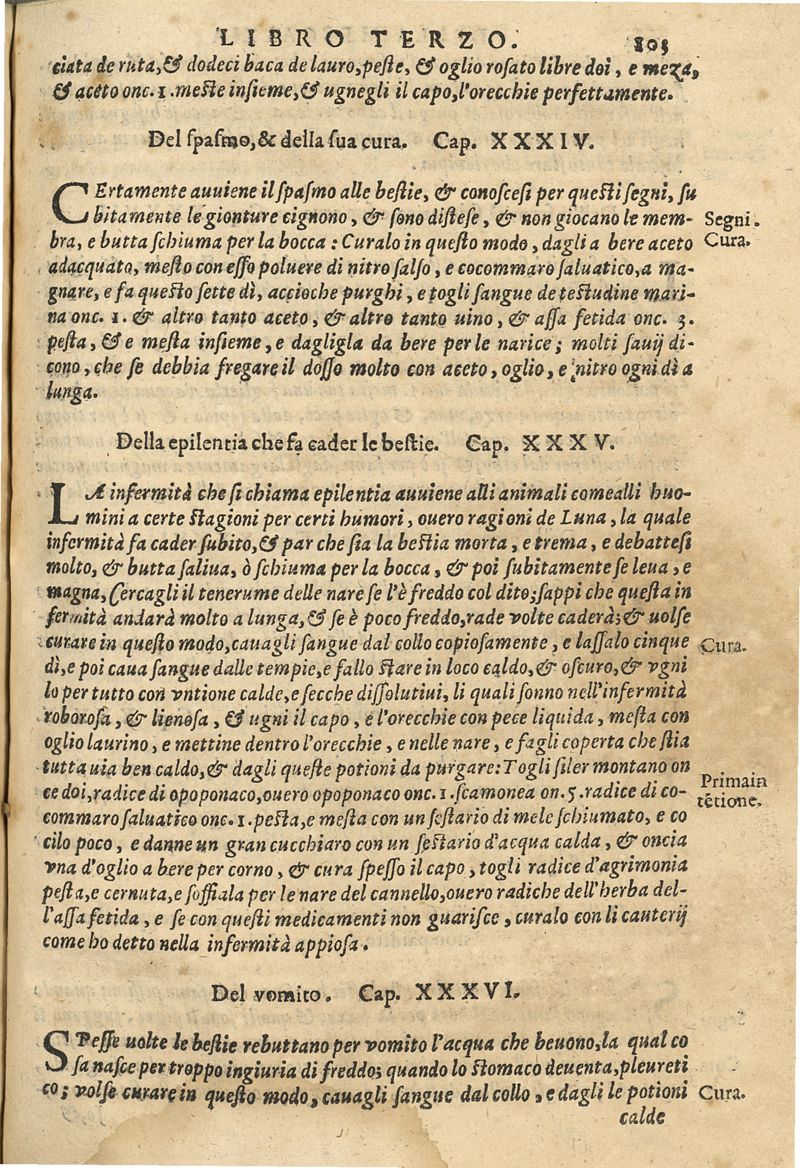 LIBRO TERZO. 103
ciata de ruta,& dodeci baca de lauro,peste, & oglio rosato libre doi, e meza,
& aceto onc. 1. meste insieme,& ugnegli il capo,l'orecchie perfettamente.
Del spasmo,& della sua cura. Cap. XXXIV.
CErtamente auuiene il spasmo alle bestie, & conoscesi per questi segni, su
bitamente le gionture cignono, & sono distese, & non giocano le mem-
Segni.
bra, e butta schiuma per la bocca : Curalo in questo modo, dagli a bere aceto
Cura.
adacquato, mesto con esso poluere di nitro salso, e cocommaro saluatico,a ma-
gnare, e fa questo sette dì, accioche purghi, e togli sangue de testudine mari-
na onc. 1. & altro tanto aceto, & altro tanto uino, & assa fetida onc. 3.
pesta, & e mesta insieme, e dagligla da bere per le narice; molti sauij di-
cono, che se debbia fregare il dosso molto con aceto, oglio, e nitro ogni dì a
lunga.
Della epilentia che fa cader le bestie. Cap. XXXV.
LA infermità che si chiama epilentia auuiene alli animali come alli huo-
mini a certe stagioni per certi humori, ouero ragioni de Luna, la quale
infermità fa cader subito,& par che sia la bestia morta, e trema, e debattesi
molto, & butta saliua, ò schiuma per la bocca, & poi subitamente se leua, e
magna, Cercagli il tenerume delle nare se l'è freddo col dito; sappi che questa in
fermità andarà molto a lunga,& se è poco freddo,rade volte caderà;& uolse
curare in questo modo,cauagli sangue dal collo copiosamente, e lassalo cinque
Cura.
dì,e poi caua sangue dalle tempie,e fallo stare in loco caldo,& oscuro,& vgni
lo per tutto con vntione calde,e secche dissolutiui, li quali sonno nell'infermità
roborosa, & lienosa, & ugni il capo, e l'orecchie con pece liquida, mesta con
oglio laurino, e mettine dentro l'orecchie, e nelle nare, e fagli coperta che stia
tutta uia ben caldo,& dagli queste potioni da purgare: Togli siler montano on
Prima in
ce doi,radice di opoponaco,ouero opoponaco onc. 1. scamonea on. 5. radice di co-
tētione.
commaro saluatico onc. 1. pesta,e mesta con un sestario di mele schiumato, e co
cilo poco, e danne un gran cucchiaro con un sestario d'acqua calda, & oncia
vna d'oglio a bere per corno, & cura spesso il capo, togli radice d'agrimonia
pesta,e cernuta,e soffiala per le nare del cannello,ouero radiche dell'herba del-
l'assa fetida, e se con questi medicamenti non guarisce, curalo con li cauterij
come ho detto nella infermità appiosa.
Del vomito. Cap. XXXVI.
SPesse uolte le bestie rebuttano per vomito l'acqua che beuono,la qual co
sa nasce per troppo ingiuria di freddo; quando lo stomaco deuenta, pleureti
co; volse curare in questo modo, cauagli sangue dal collo, e dagli le potioni
Cura.
calde